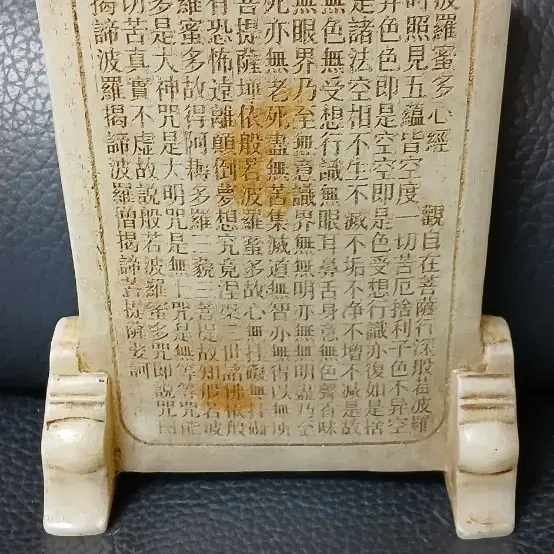 波羅蜜多心經 觀自在菩薩行深般若波羅
時照見五蘊皆空度一切苦厄捨利子色不異空
異色色即是空空即是色受想行識亦復如是捨
是諸法空相不生不滅不垢不净不增不減是故
無色無受想行識無眼耳鼻舌身意無色聲香味
無眼界乃至無意識界無無明亦無無明盡乃至
死亦無老死盡無苦集滅道無智亦無得以無所
菩提薩埵依般若波羅蜜多故心無罣礙無罣礙
有恐怖遠離顛倒夢想究竟涅槃三世諸佛依般
羅蜜多故得阿耨多羅三藐三菩提故知般若波
多是大神咒是大明咒是無上咒是無等等咒能
切苦真實不虛故說般若波羅蜜多咒即說咒曰
揭諦波羅揭諦波羅僧揭諦菩提薩婆訶